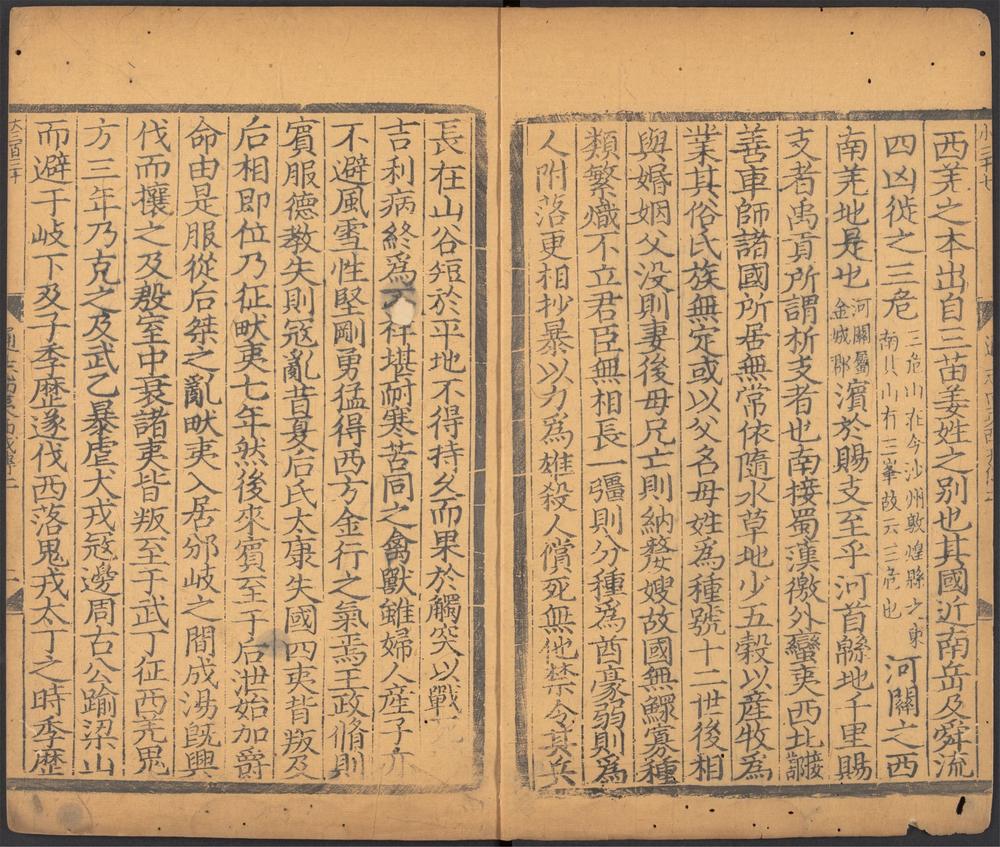 西羌之本出自三苗姜姓之别也其國近南岳及舜流
四凶徙之三危三危山在今沙州敦煌縣之東南山有三峯故云三危也河關之西
南羌地是也河關屬金城郡濱於賜支至乎河首緜地千里賜
支者禹貢所謂析支者也南接蜀漢徼外蠻夷西北接鄯
善車師諸國所居無常依隨水草地少五穀以産牧為
業其俗氏族無定或以父名母姓為種號十二世後相
與婚姻父没則妻後母兄亡則納嫠嫂故國無鰥寡種
類繁熾不立君臣無相長一彊則分種為酋豪弱則為
人附落更相抄暴以力為雄殺人償死無他禁令其兵
長在山谷短於平地不得持久而果於觸突以戰死
吉利病終為不祥堪耐寒苦同之禽獸雖婦人産子亦
不避風雪性堅剛勇猛得西方金行之氣焉王政脩則
賓服德教失則寇亂昔夏后氏太康失國四夷皆叛及
后相即位乃征畎夷七年然後來賓至于后泄始加爵
命由是服從后桀之亂畎夷入居邠岐之間成湯既興
伐而攘之及殷室中衰諸夷皆叛至于武丁征西羌鬼
方三年乃克之及武乙暴虐犬戎寇邊周古公踰梁山
而避于岐下及子季歷遂伐西落鬼戎太丁之時季歷